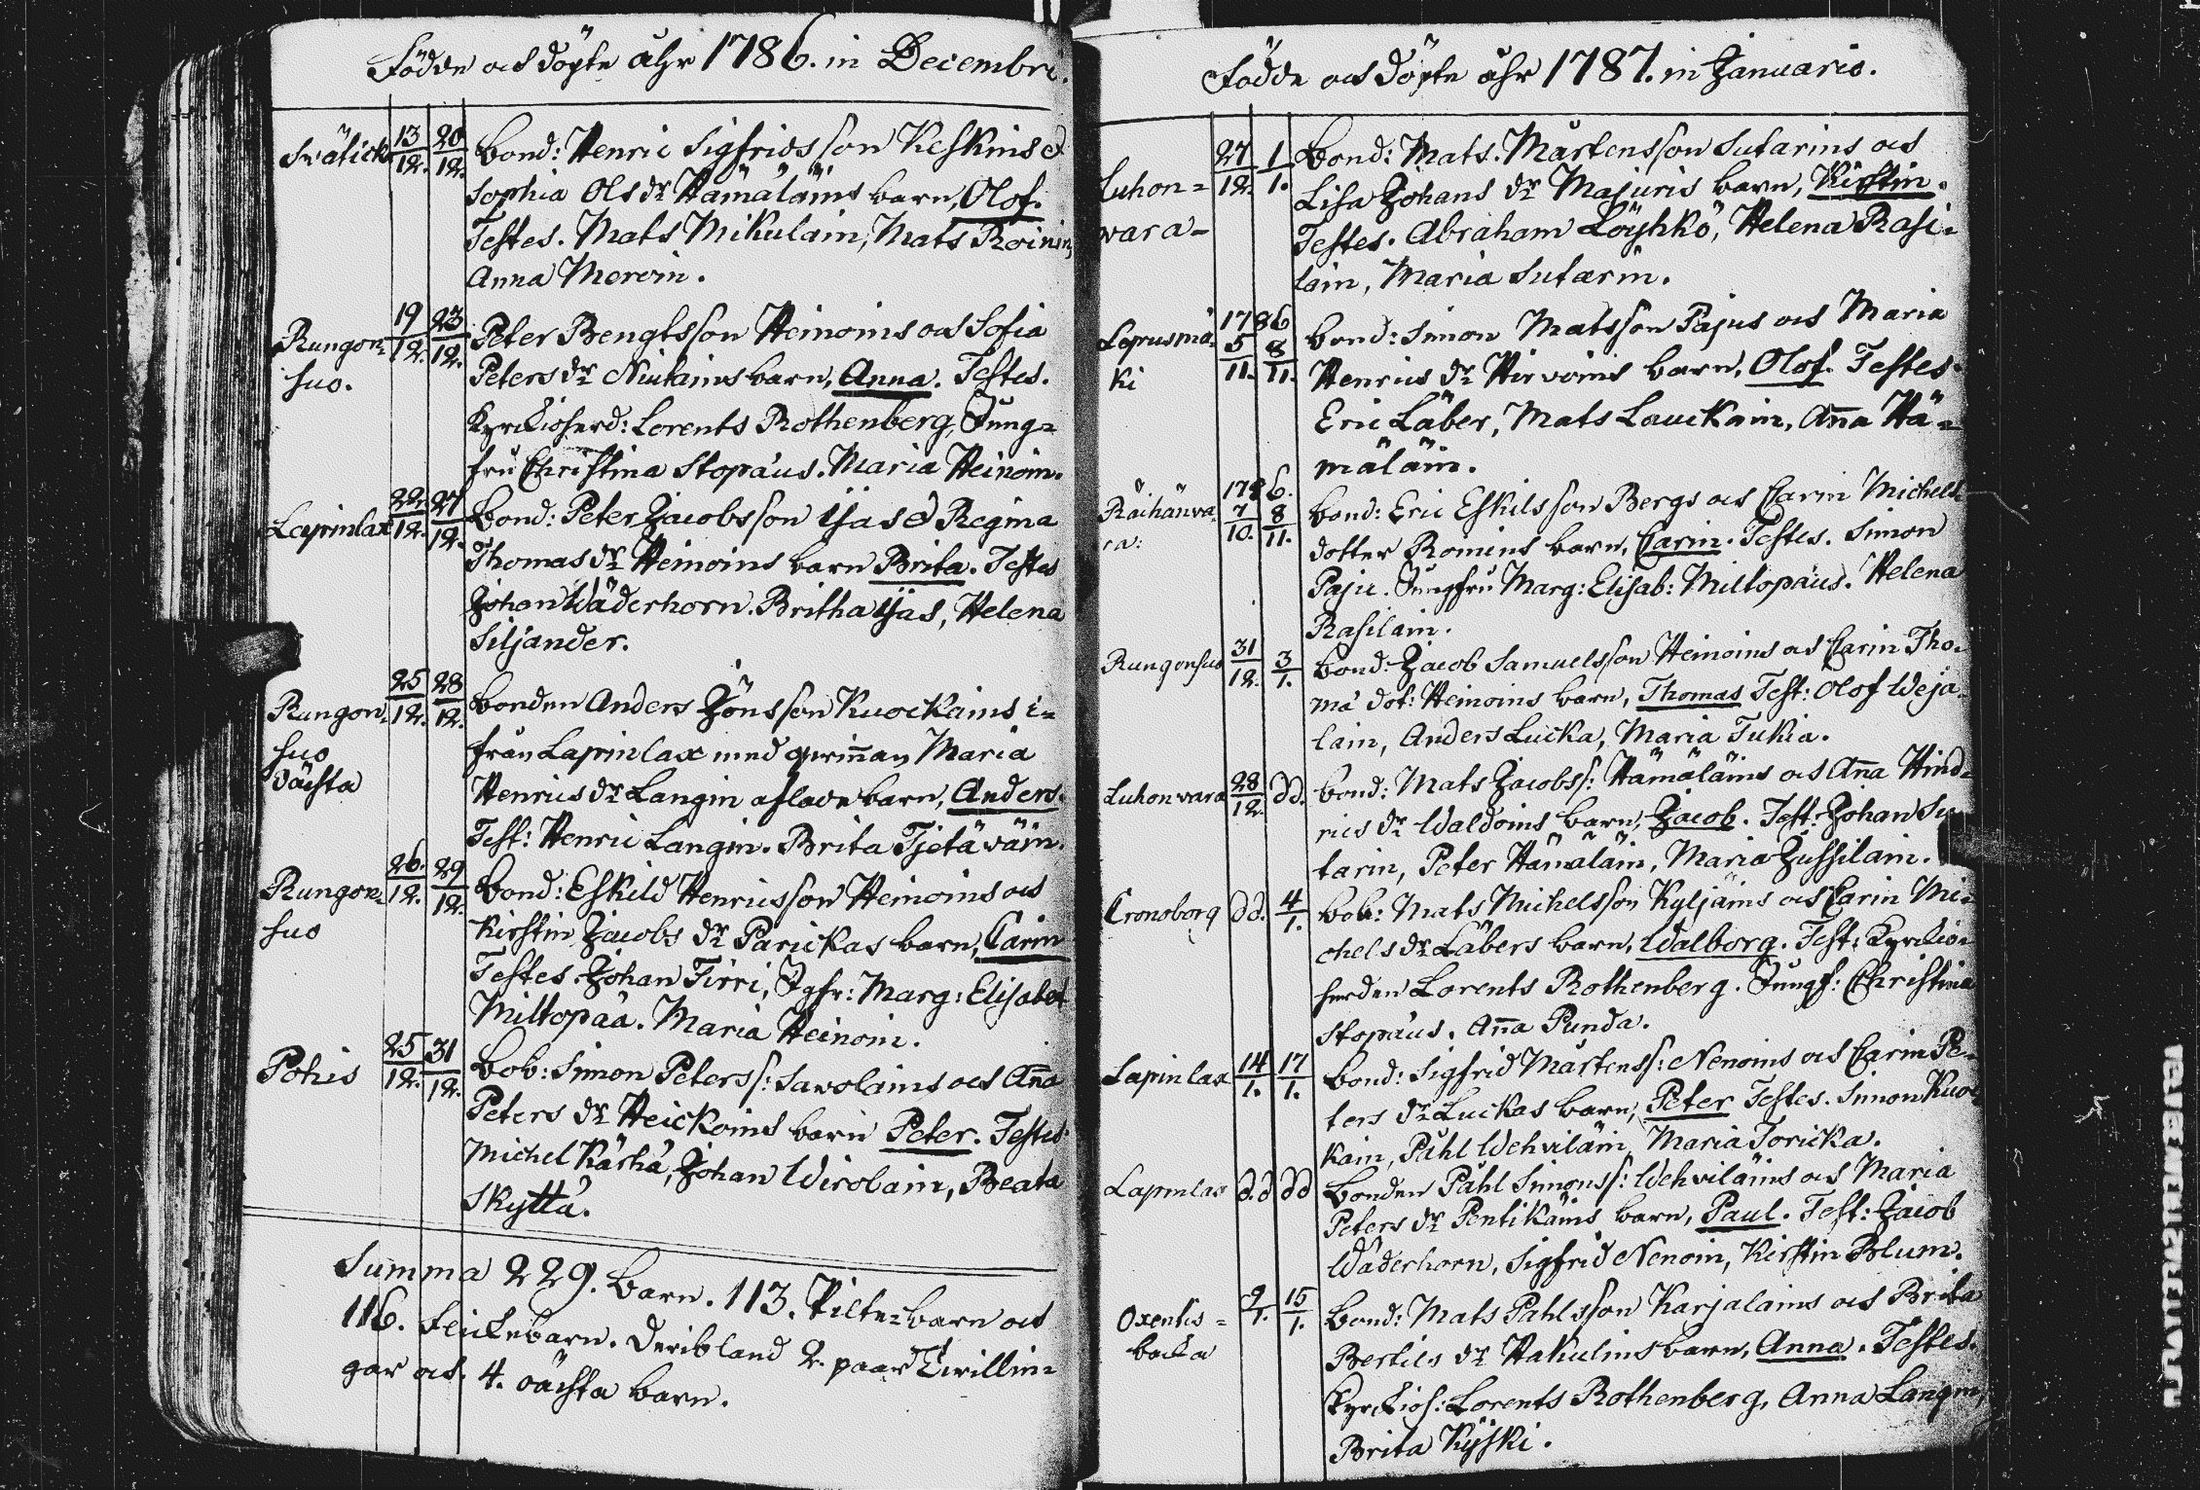 Födde och döpte åhr 1786. in Decembri.
Svätick 13/12. 20/12. bond: Henric Sigfridsson Keskins &
Sophia Olsdr Hämäläins barn, Olof.
Testes. Mats Mikulain, Mats Roinin,
Anna Merein.
Rungon= 19/12. 23/12. Peter Bengtsson Heinoins och Sofia
suo. Peters dr Niutains barn, Anna. Testes.
Kyrckioherd: Lorents Rothenberg, Jung=
fru Christina Stopæus. Maria Heinoin.
Lapinlax 22/12. 27/12. bond: Peter Jacobsson Ijas & Regina
Thomas dr Heinoins barn Brita. Testes
Johan Wäderhorn. Britha Ijäs, Helena
Siljander.
Rungon= 25/12. 28/12. bonden Anders Jönsson Kuockains i=
suo från Lapinlax med qvinnan Maria
oächta Henrics dr Langin aflade barn, Anders.
Test: Henric Langin. Brita Tjetäväin.
Rungon= 26/12. 29/12. bond: Eskild Henricsson Heinoins och
suo Kirstin Jacobs dr Parickas barn, Carin
Testes. Johan Tirri, Jgfr: Marg: Elisabet
Miltopaä. Maria Heinoin.
Pohis 25/12. 31/12. bob: Simon Peterss: Savolains och Anna
Peters dr Heickoins barn Peter. Testes
Michel Kärhä, Johan Wirolain, Beata
Skyttä.
Summa 229. barn. 113. Pilte=barn och
116. flickebarn. Deribland 2. paar Tvillin=
gar och. 4. oächta barn.
Födde och döpte åhr 1787. in Januario.
Luhon= 27/12. 1/1. bond: Mats. Mårtensson Sutarins och
vara= Lisa Johans dr Majuris barn, Kirstin.
Testes. Abraham Löyhkö, Helena Rasi=
lain, Maria Sutarin.
Lopusmä= 1786 5/11. 8/11. bond: Simon Matsson Pajus och Maria
ki Henrics dr Hirvoins barn, Olof. Testes.
Eric Läber, Mats Lauckain, Anna Hä=
mäläin.
Räihänva= 1786. 7/10. 8/11. bond: Eric Eskilsson Bergs och Carin Michels
ra: dotter Romins barn, Carin. Testes. Simon
Paju. Jungfru Marg: Elisab: Miltopæus. Helena
Rasilain.
Rungonsuo 31/12. 3/1. bond: Jacob Samuelsson Heinoins och Carin Tho=
mæ dot: Heinoins barn, Thomas Test: Olof Weja=
lain, Anders Lucka, Maria Tukia.
Luhonvara 28/12. dd. bond: Mats Jacobss: Hämäläins och Anna Hind=
rics dr Waldoins barn, Jacob. Test: Johan Su
tarin, Peter Hämäläin, Maria Jussilain.
Cronoborg dd. 4/1. bob: Mats Michelsson Kyljäins och Carin Mi=
chels dr Läbers barn, Walborg. Test: Kyrckio=
herden Lorents Rothenberg. Jungf: Christina
Stopæus. Anna Punda.
Lapinlax 14/1. 17/1. bond: Sigfrid Mårtenss: Nenoins och Carin Pe=
ters dr Luckas barn, Peter Testes. Simon Kuoc
kain, Påhl Wehviläin, Maria Toricka.
Lapinlax d.d dd bonden Påhl Simonss: Wehviläins och Maria
Peters dr Pentikäins barn, Paul. Test: Jacob
Wäderhorn, Sigfrid Nenoin, Kirstin Blum.
Oxentis= 9/1. 15/1. bond: Mats Pahlsson Karjalains och Brita
backa Bertils dr Hakulins barn, Anna. Testes.
Kyrckioh: Lorents Rothenberg, Anna Langin,
Brita Kyski.